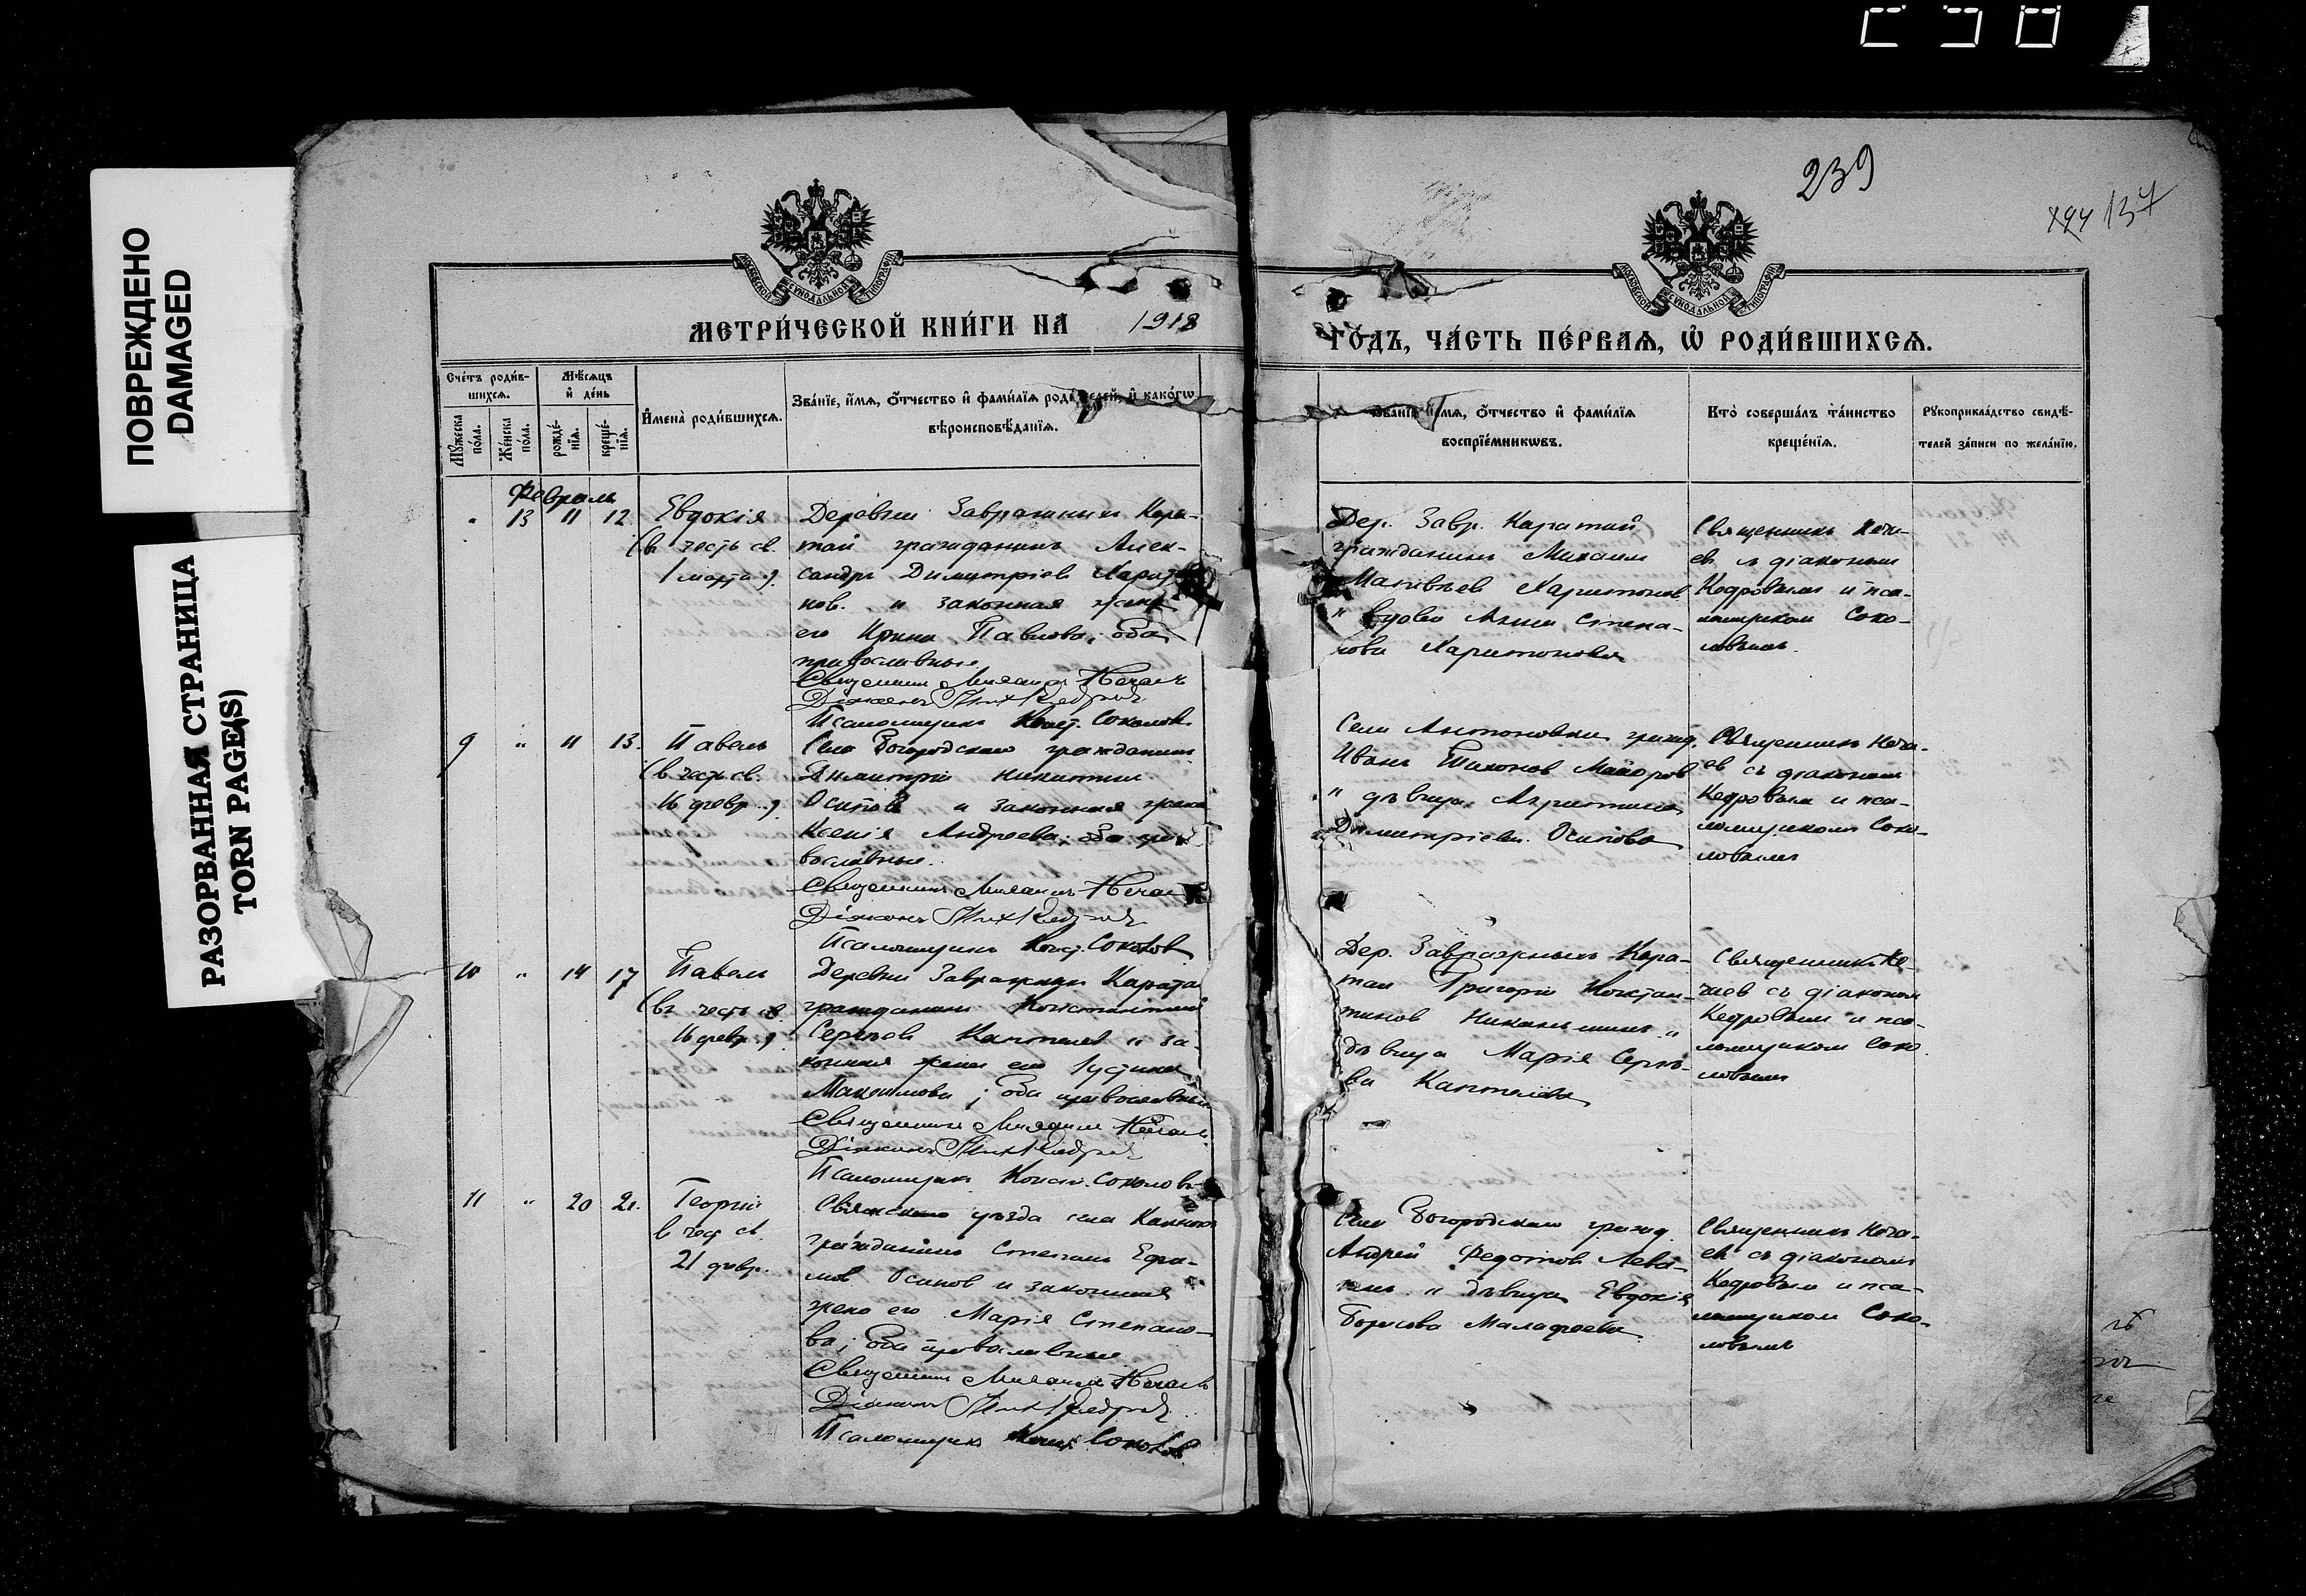 ПОВРЕЖДЕНО
DAMAGED
РАЗОРВАННАЯ СТРАНИЦА
TORN PAGE(S)
239
137
МОСКОВСКОЙ СѴНОДАЛЬНОЙ ТИПОГРАФІИ
МОСКОВСКОЙ СѴНОДАЛЬНОЙ ТИПОГРАФІИ
МЕТРИ́ЧЕСКОЙ КНИ́ГИ НА 1918
ГО́ДЪ, ЧА́СТЬ ПЕ́РВАѦ, Ѡ҆ РОДИ́ВШИХСѦ.
Сче́тъ роди́в-
шихсѧ.
Мѣ́сѧцъ
и҆ де́нь
Мꙋ́жеска по́ла.
Же́нска по́ла.
рожде́-нїѧ.
креще́-нїѧ.
И҆мена̀ роди́вшихсѧ.
Зва́нїе, и҆́мѧ, ѻ҆́тчество и҆ фами́лїѧ роди́телей, и҆ како́гѡ
вѣроисповѣ́данїѧ.
Зва́нїе, и҆́мѧ, ѻ҆́тчество и҆ фами́лїѧ
воспрїе́мникѡвъ.
Кто̀ соверша́лъ та́инство
креще́нїѧ.
Рꙋкоприкла́дство свидѣ́-
телей за́писи по жела́нїю.
Февраль
" 13 11 12. Евдокія
(въ честь св.
1 марта).
Деревни Завражныи Кара-
тай гражданинъ Алек-
сандръ Димитріев Харито
нов. и законная жена
его Ирина Павлова; оба
православные.
Священникъ Михаилъ Нечаевъ
Діаконъ Кедровъ
Псаломщикъ Конст. Соколов.
Дер. Завр. Каратай
гражданинъ Михаил
Матвѣев Харитонов
и вдова Анна Степа-
нова Харитонова
Священникъ Неча-
ев съ діаконом
Кедровым и пса-
ломщиком Соко-
ловымъ.
9 " 11 13. Павелъ
(въ честь св.
16 февр.).
Села Богородскаго гражданинъ
Димитрій Никитин
Осипов и законная жена
Ксенія Андреева; оба пра
вославные.
Священникъ Михаилъ Нечаев
Діаконъ Кедровъ
Псаломщикъ Конст. Соколов
Села Антоновки гражд.
Иванъ Тихонов Майоров
и дѣвица
Димитріева Осипова
Священникъ Неча-
ев съ діаконом
Кедровым и пса-
ломщиком Соко-
ловымъ
10 " 14 17 Павелъ
(въ честь св.
16 февр.).
Деревни Завражныи Карата
гражданинъ Константинъ
Сергѣев Каптелов и за-
конная жена его Іустина
Максимова; оба православные
Священникъ Михаилъ Нечаев.
Діаконъ Кедровъ
Псаломщикъ Конст. Соколовъ
Дер. Завражныхъ Кара-
тай Григорій Констан-
тинов и
дѣвица Марія Сергѣ-
ва Каптелова
Священникъ Не-
чаев съ діаконом
Кедровым и пса-
ломщиком Соко
ловымъ
11 " 20 21. Георгій
в чес. св.
21 февр.
Свіяжскаго уѣзда села
гражданинъ Степанъ Ефи-
мов Осипов и законная
жена его Марія Степано-
ва; оба православные
Священникъ Михаилъ Нечаевъ
Діаконъ Кедровъ
Псаломщикъ Конст. Соколов
Села Богородскаго гражд.
Андрей Федотов
и дѣвица Евдокія
Борисова Малафеева.
Священникъ Неча-
ев съ діаконом
Кедровым и пса-
ломщиком Соко-
ловымъ